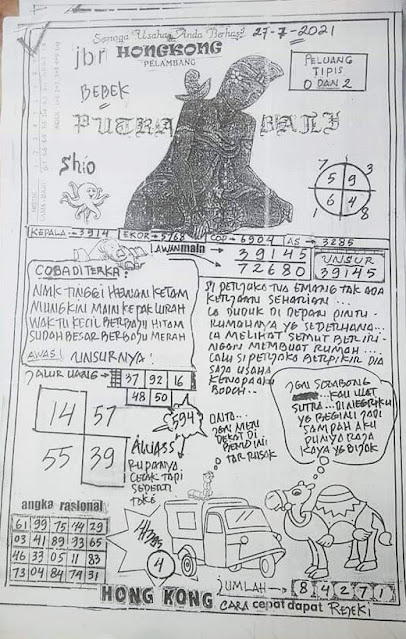 Semoga Usaha Anda Berhasil
27-7-2021
jbr HONGKONG
PELAMBANG
BEBEK
PELUANG
TIPIS
0 DAN 2
PUTRA BALI
Shio
7 3
5 9
6 4
1 8
KEPALA=3914 EKOR=5768 COP=6904 AS=3285
LAWAN main
39145
72680
UNSUR
39145
COBA DI TERKA:
NAIK TINGGI HEWAN KETAM
MUNGKIN MAIN KEPAK LURAH
WAKTU KECIL BERBAJU HITAM
SUDAH BESAR BERBAJU MERAH
AWAS! UNSURNYA!
SI PENJAKO TUA EMANG TAK ADA
KERJAAN SEHARIAN ...
IA DUDUK DI DEPAN PINTU
RUMAHNYA YG SEDERHANA...
IA MELIHAT SEMUT BERIRI-
NGAN MEMBUAT RUMAH....
LALU SI PENJAKO BERPIKIR DIA
SAJA USAHA
KENAPA AKU
BODOH...
JALUR UANG
37 92 16
48 50
594
14 57
55 39
AWASS
RUPANYA
CETAK TAPI
SEPERTI
TOKE
JGN MEN
DEKAT DI
BEMO INI
TAR RUSAK
JGN SOMBONG
KAU ULAT
SUTRA... DI NEGRIKU
YG BEGINI JADI
SAMPAH AKU
PUNYA RAJA
KAYA YG BIJAK
angka rasional
61 99 75 44 29
03 41 89 93 65
46 33 05 11 83
73 04 84 74 31
4
JUMLAH
84271
HONG KONG CARA cepat dapat REJEKI